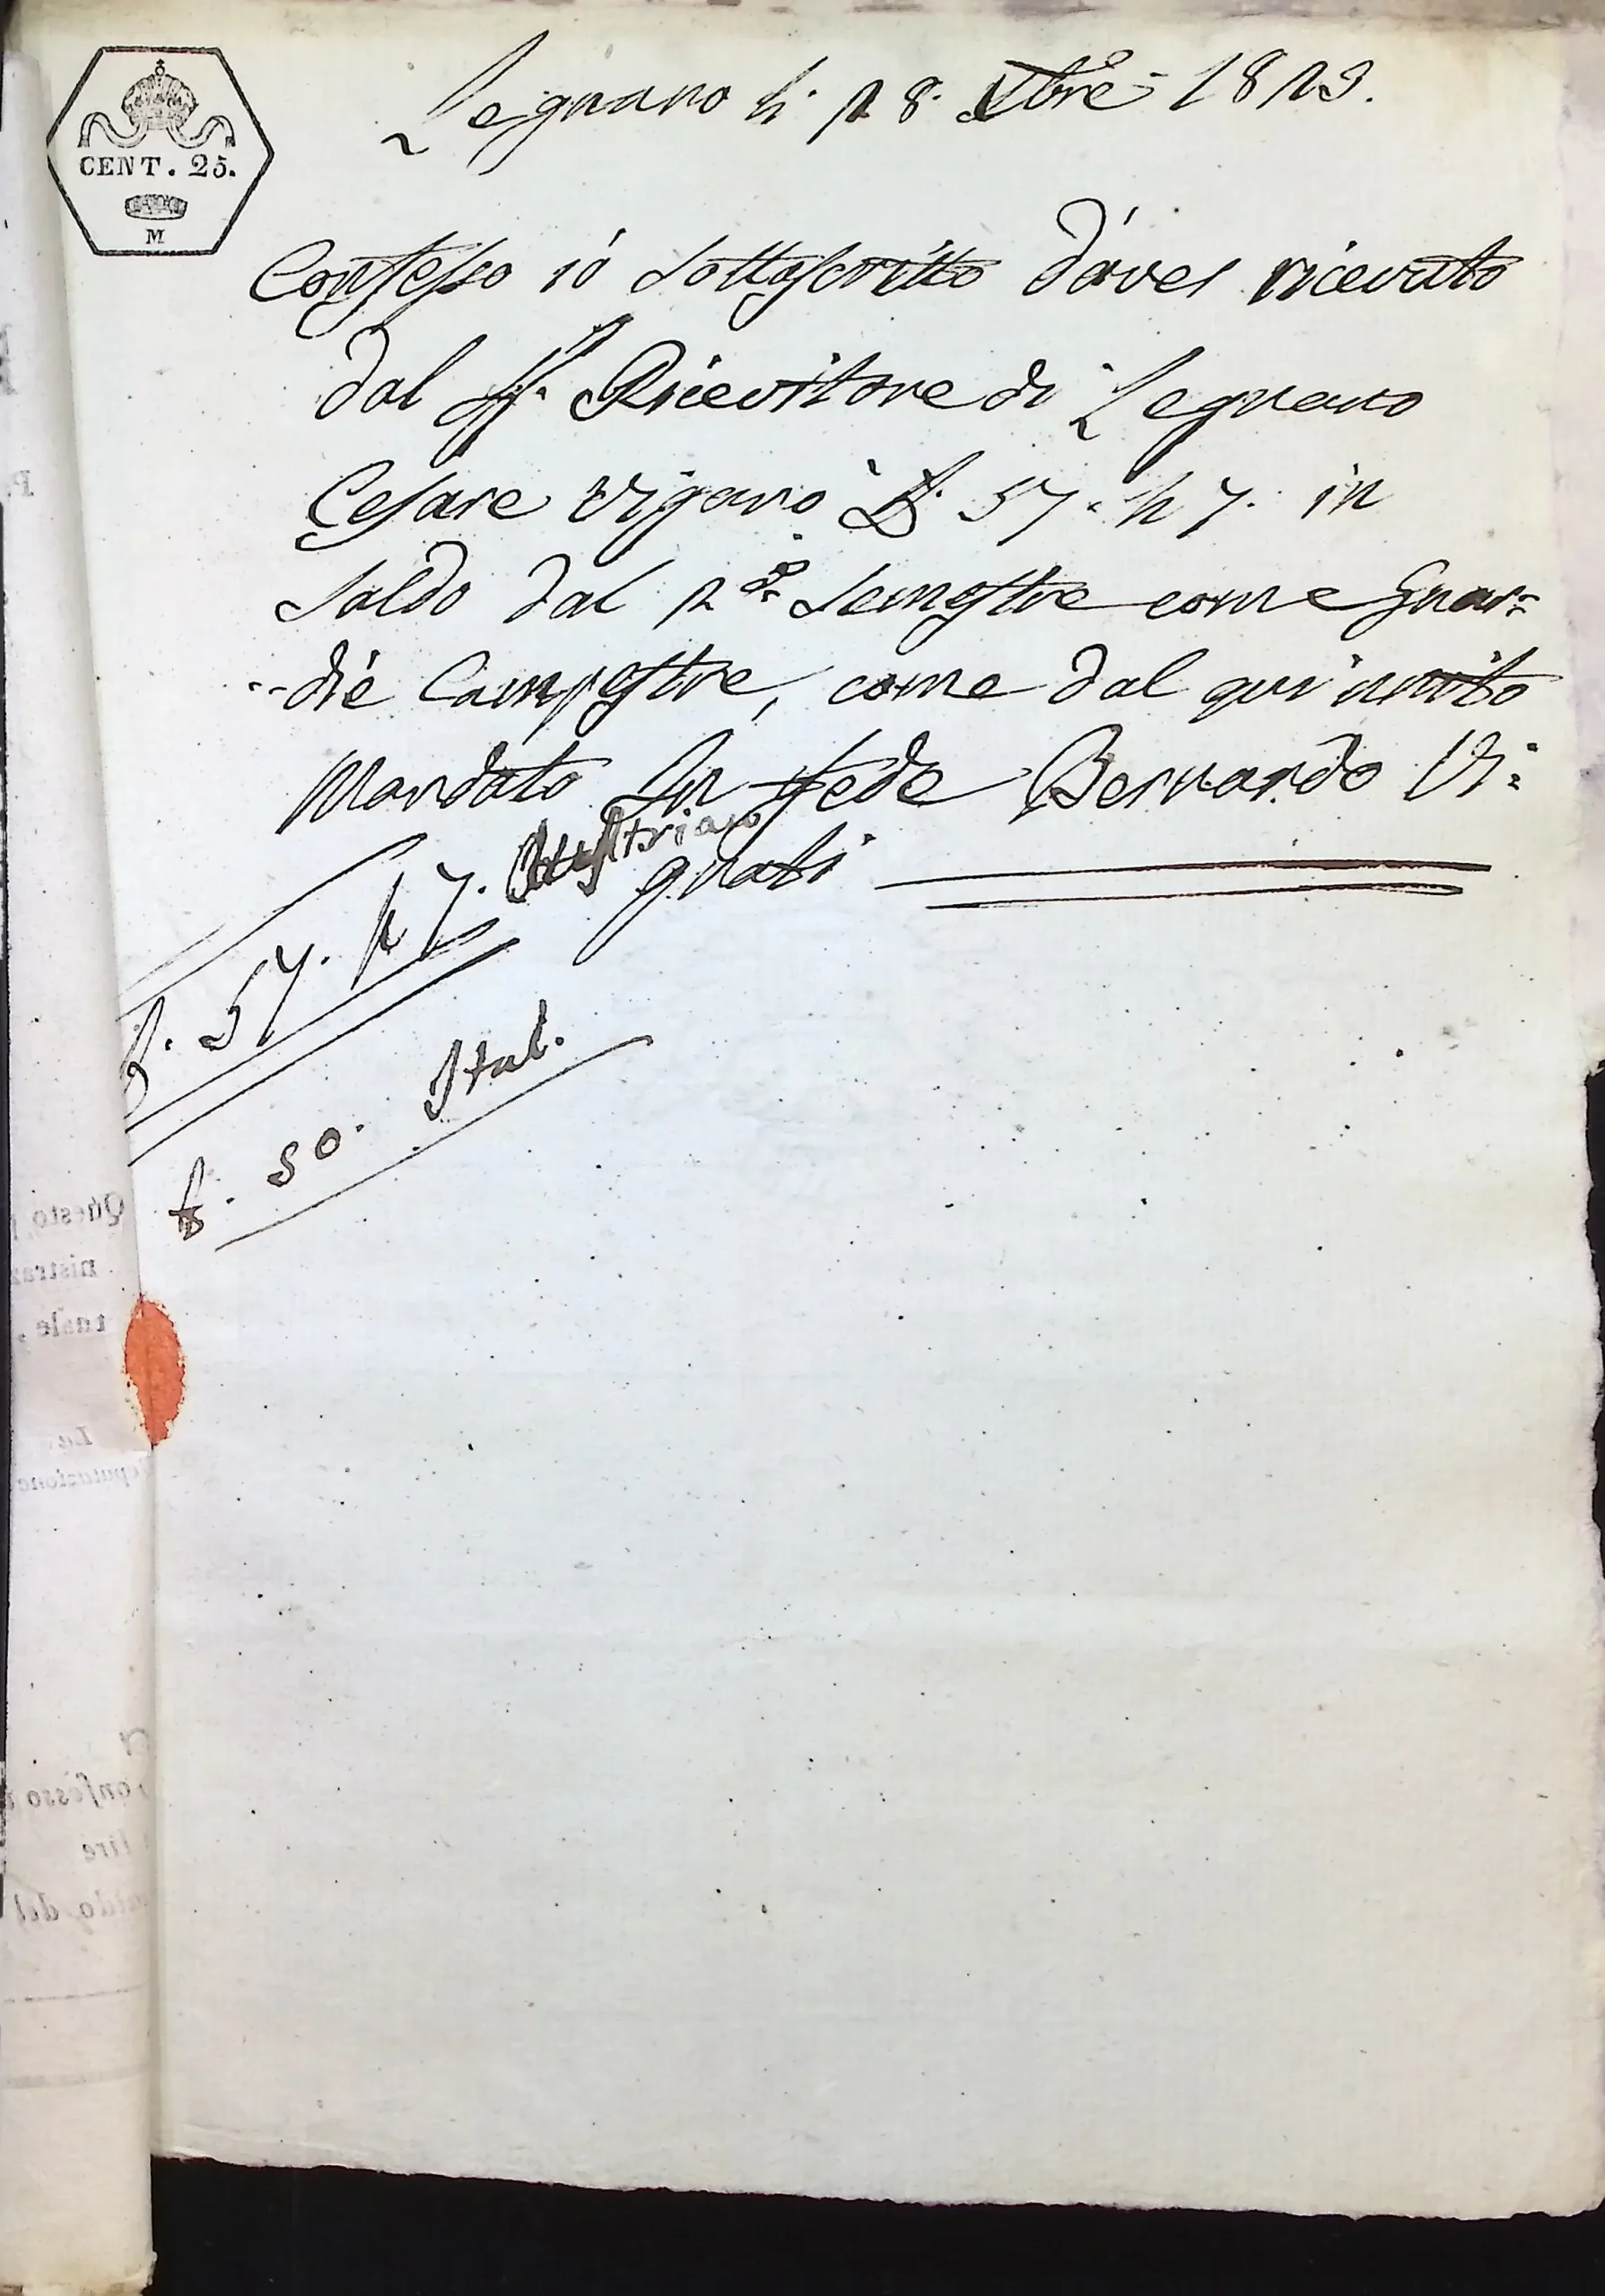 CENT. 25.
M
Legnano li 28. Xbre 1823.
Confesso io Sottoscritto d'aver ricevuto
dal Sr. Ricevitore di Legnano
Cesare Viganò £. 57. 47. in
Saldo dal 2do Semestre come Guar=
=die Campestre, come dal qui unito
Mandato In fede Bernardo Vi=
gnati
£. 57. 47. Austriac
£. 50. Ital.
Questo
nistraz
tuale,
La
eputazione
onfesso
lire
aldo del